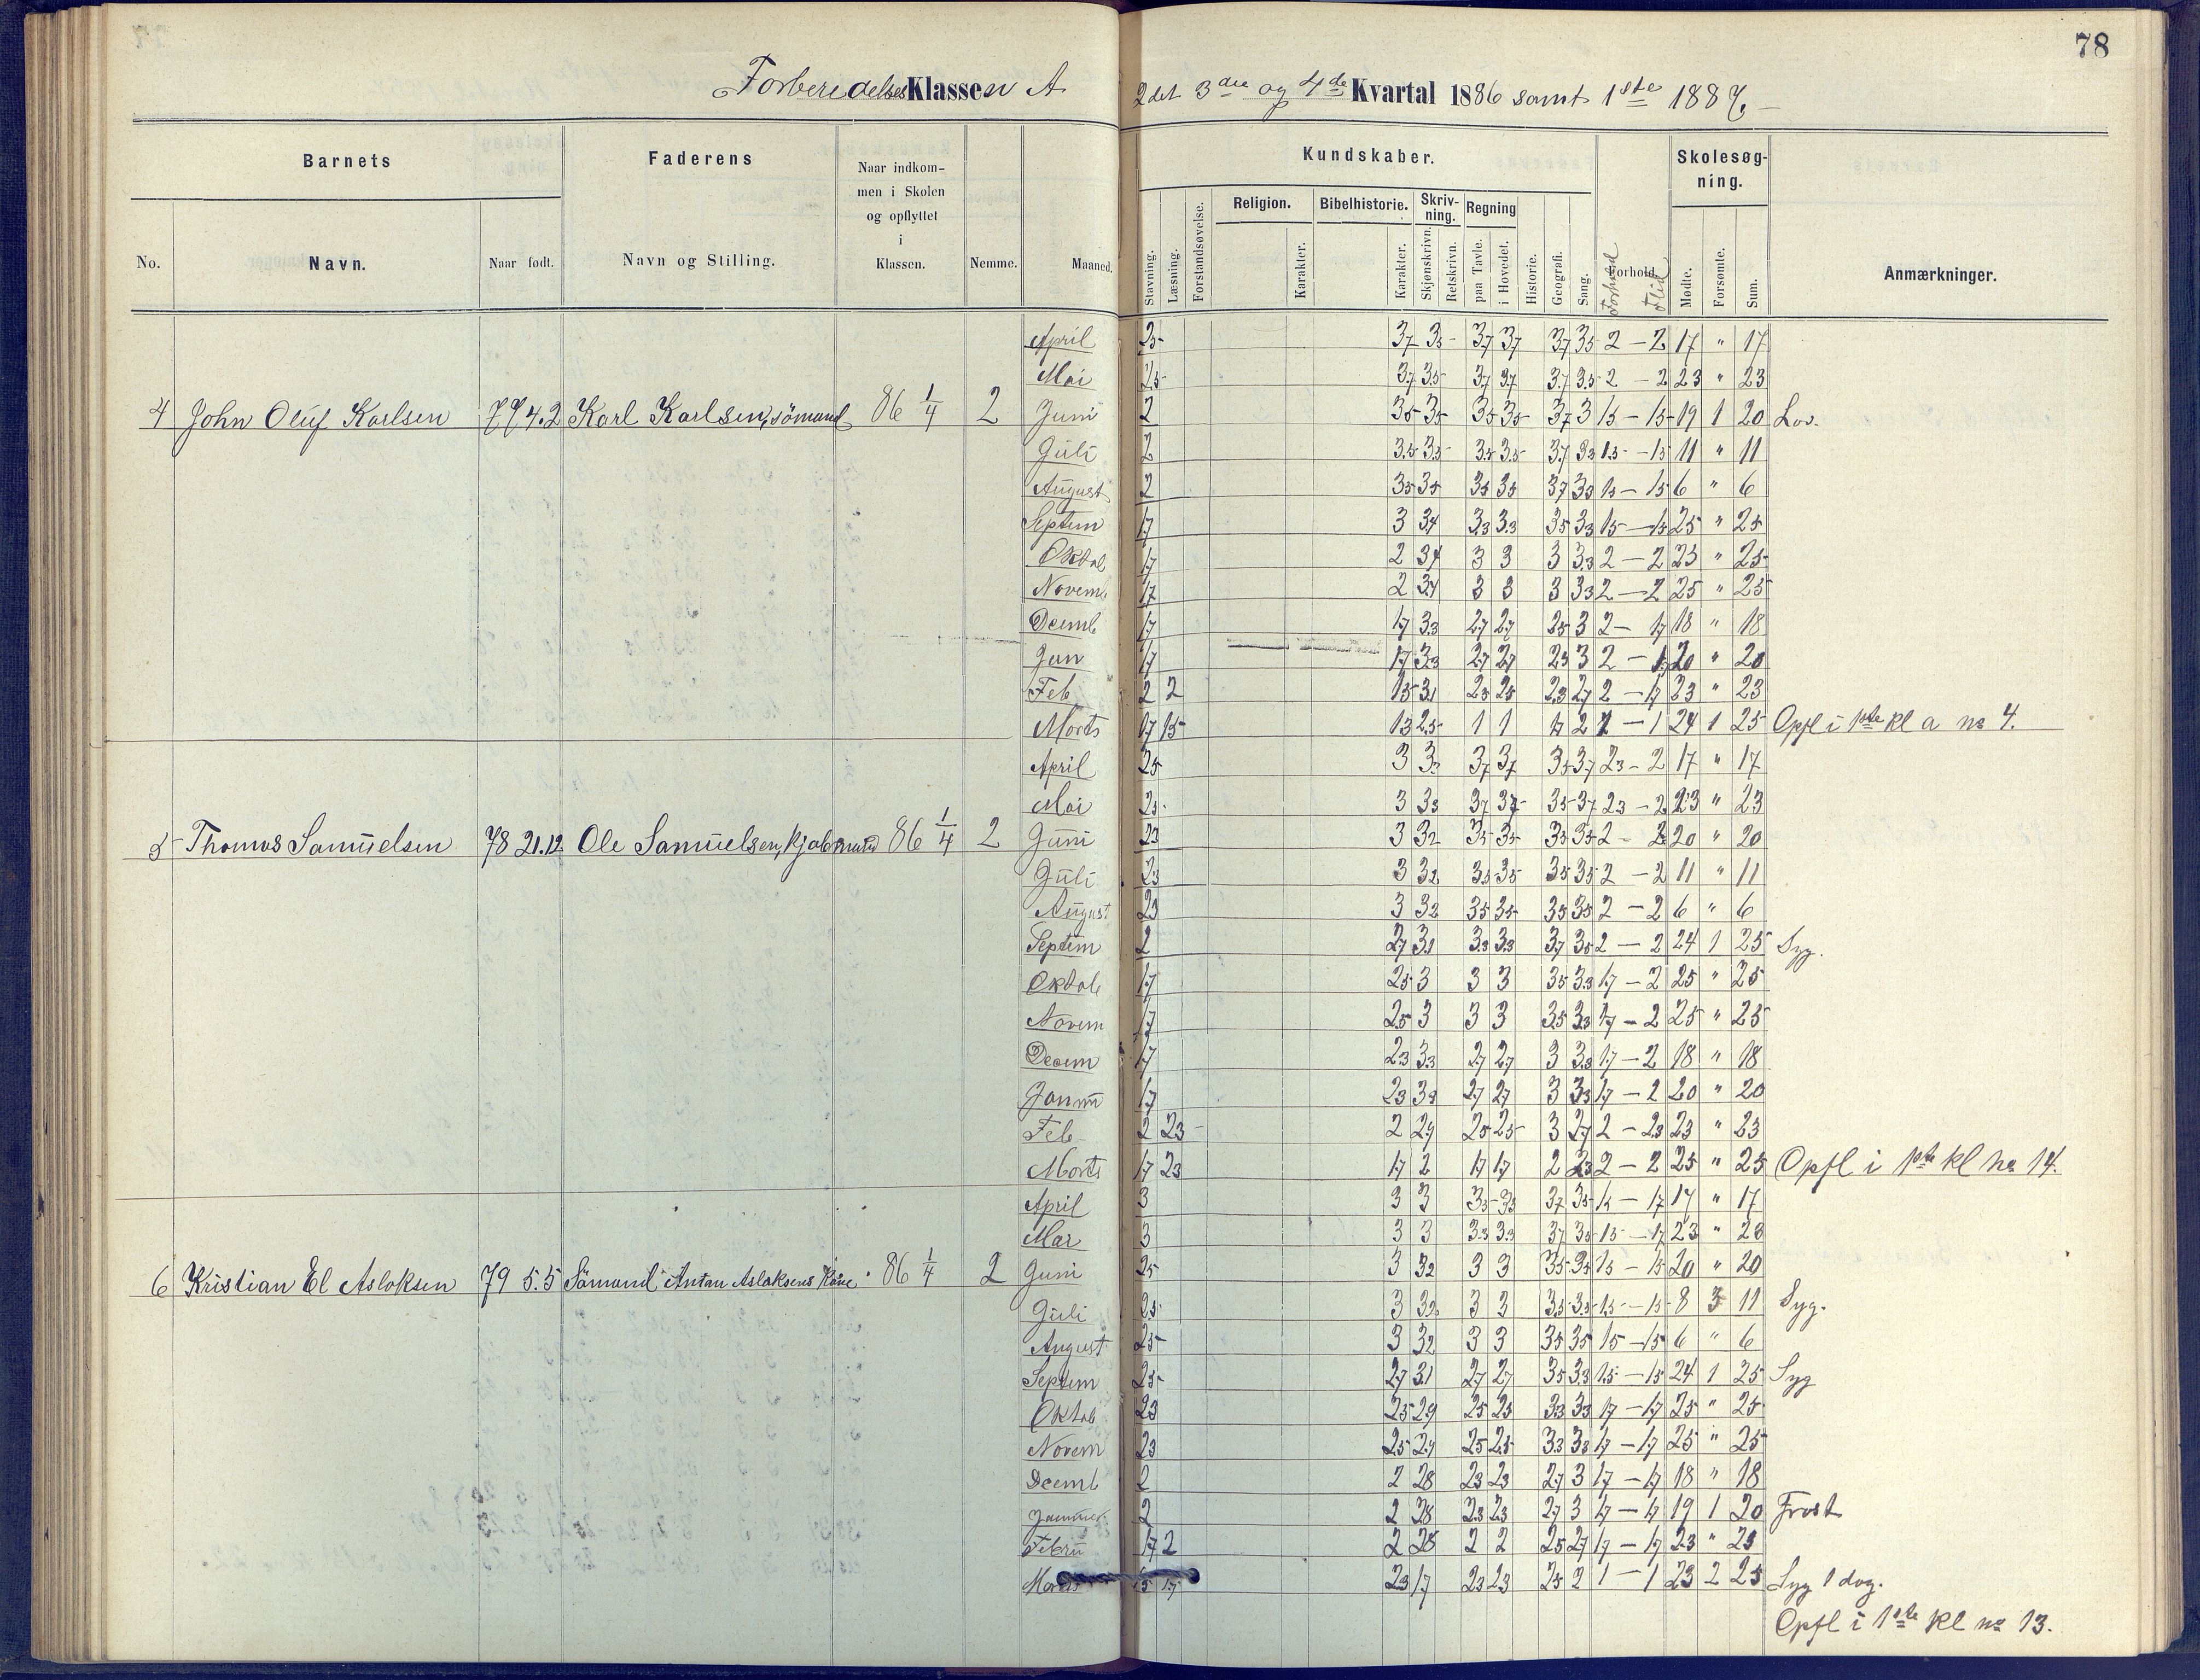 78
ForberedelsesKlassen A 2det 3die og 4de Kvartal 1886 samt 1ste 1887.
Barnets Faderens Naar indkommen i Skolen og opflyttet i Klassen. Nemme. Maaned.
No. Navn. Naar født. Navn og Stilling.
Kundskaber. Skolesøgning.
Stavning. Læsning. Forstandsøvelse. Religion. Karakter. Bibelhistorie. Karakter. Skrivning. Skjønskrivn. Retskrivn. Regning paa Tavle. i Hovedet. Historie. Geografi. Sang. Forhold. Forhold Flid Møde. Forsømte. Sum. Anmærkninger.
April 25 37 35 37 37 37 35 2 – 2 17 " 17
Mai 25 37 35 37 37 37 35 2 – 2 23 " 23
4 John Oluf Karlsen 77 4.2 Karl Karlsen, sömand 86 1/4 2 Juni 2 35 35 35 35 37 3 15 – 15 19 1 20 Lov.
Juli 2 35 35 35 35 37 33 15 – 15 11 " 11
August 2 35 35 35 35 37 33 15 – 15 6 " 6
Septem 17 3 34 33 33 35 33 15 – 15 25 " 25
Oktob 17 2 34 3 3 3 33 2 – 2 25 " 25
Novemb 17 2 34 3 3 3 33 2 – 2 25 " 25
Decemb 17 17 33 27 27 25 3 2 – 17 18 " 18
Jan 17 17 33 27 27 23 3 2 – 17 20 " 20
Feb 2 2 15 31 23 25 23 27 2 – 17 23 " 23
Marts 17 15 13 25 1 1 17 2 1 – 1 24 1 25 Opfl i 1ste kl a no 4.
April 25 3 33 37 37 35 37 23 – 2 17 " 17
Mai 25 3 33 37 37 35 37 23 – 2 23 " 23
5 Thomas Samuelsen 78 21.12 Ole Samuelsen, kjøbmand 86 1/4 2 Juni 23 3 32 35 35 35 35 2 – 2 20 " 20
Juli 23 3 32 35 35 35 35 2 – 2 11 " 11
August 23 3 32 35 35 35 35 2 – 2 6 " 6
Septem 2 27 31 33 33 37 35 2 – 2 24 1 25 Syg.
Oktob 17 25 3 3 3 35 33 17 – 2 25 " 25
Novem 17 25 3 3 3 35 33 17 – 2 25 " 25
Decem 17 23 33 27 27 3 33 17 – 2 18 " 18
Januu 17 23 33 27 27 3 33 17 – 2 20 " 20
Feb 2 23 2 29 25 25 3 27 2 – 23 23 " 23
Marts 17 23 17 2 17 17 2 23 2 – 2 25 " 25 Opfl i 1ste kl no 14.
April 3 3 3 35 35 37 35 15 – 17 17 " 17
Mai 3 3 3 33 33 37 35 15 – 17 23 " 23
6 Kristian El Aslaksen 79 5.5 Sömand Anton Aslaksens kone 86 1/4 2 Juni 25 3 32 3 3 35 35 15 – 15 20 " 20
Juli 25 3 32 3 3 35 35 15 – 15 8 3 11 Syg.
August 25 3 32 3 3 35 35 15 – 15 6 " 6
Septem 25 27 31 27 27 35 33 15 – 15 24 1 25 Syg
Oktob 23 25 29 25 25 33 33 17 – 17 25 " 25
Novem 23 25 29 25 25 33 33 17 – 17 25 " 25
Decemb 2 2 28 23 23 27 3 17 – 17 18 " 18
Januar 2 2 28 23 23 27 3 17 – 17 19 1 20 Frost
Febru 17 2 2 28 2 2 25 27 17 – 17 23 " 23
Marts 15 17 23 17 23 23 25 2 1 – 1 23 2 25 Syg 1 dag.
Opfl i 1ste kl no 13.